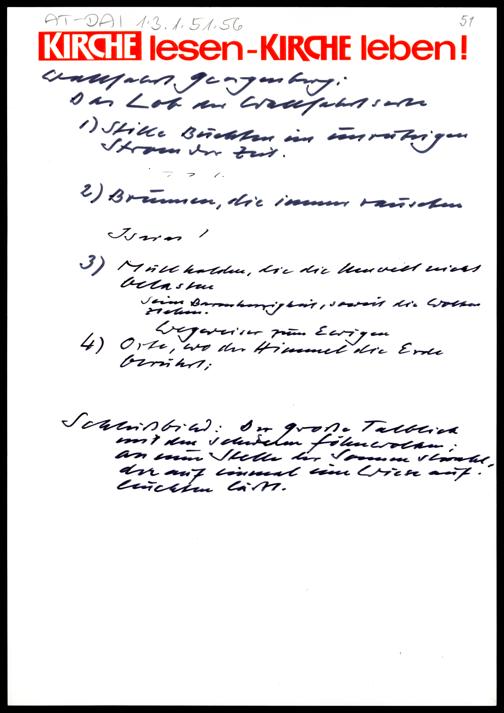 AT-DAI 1.3.1.51.56
51
KIRCHE lesen-KIRCHE leben!
Wallfahrt Georgenberg:
Das Lob der Wallfahrtsorte
1) Stille Buchten im unruhigen
Strom der Zeit.
2) Brunnen, die immer rauschen
Isaias!
3) Müllhalden, die die Umwelt nicht
belasten
Seine Barmherzigkeit, soweit die Wolken
ziehen.
Wegweiser zum Ewigen
4) Orte, wo der Himmel die Erde
berührt;
Schlußbild: Der große Talblick
mit den schweren Föhnwolken;
an einer Stelle der Sonnenstrahl,
der auf einmal eine Wiese auf-
leuchten läßt.